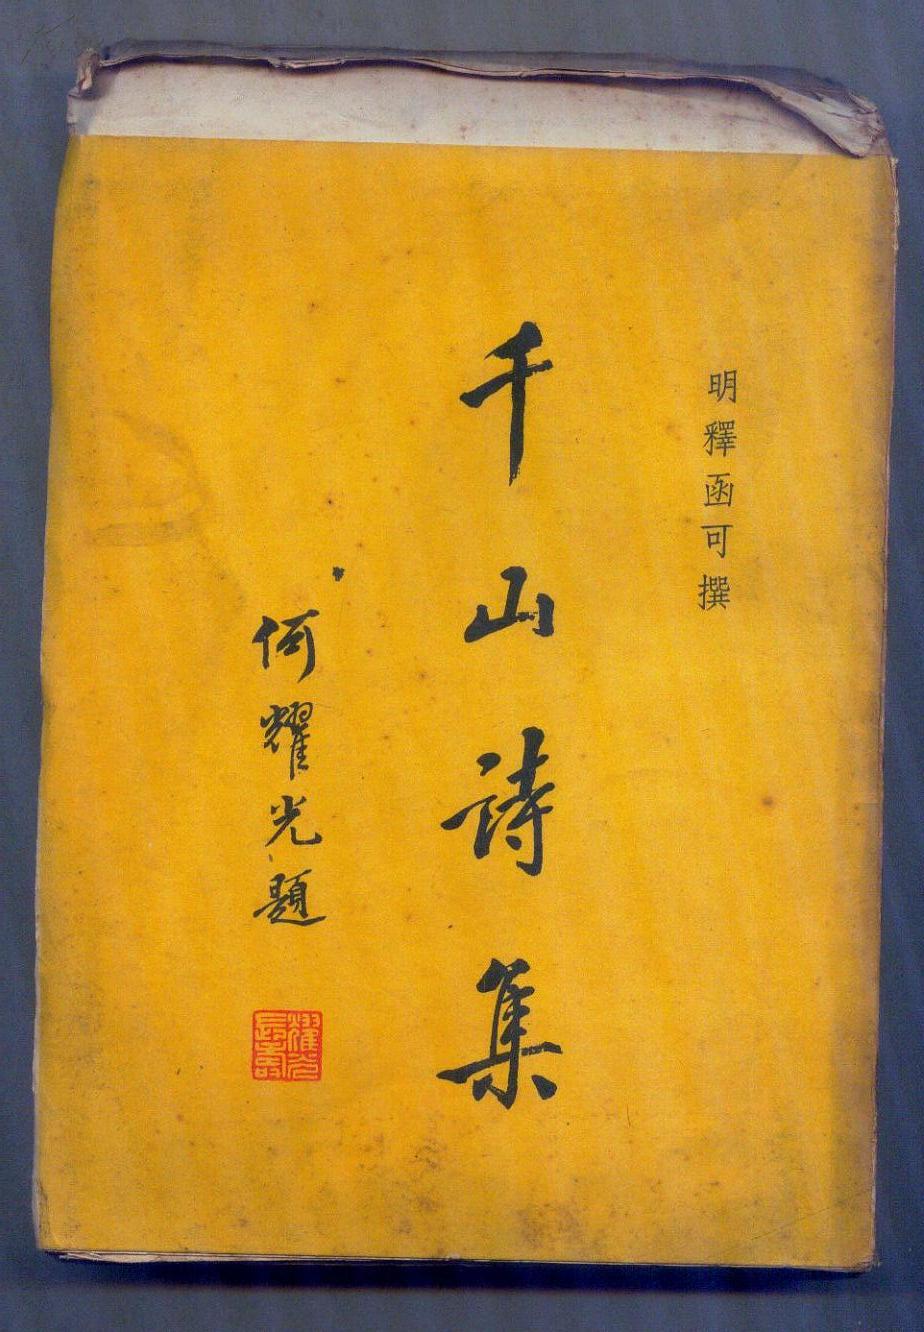 明釋函可撰
千山詩集
何耀光題
耀光長壽